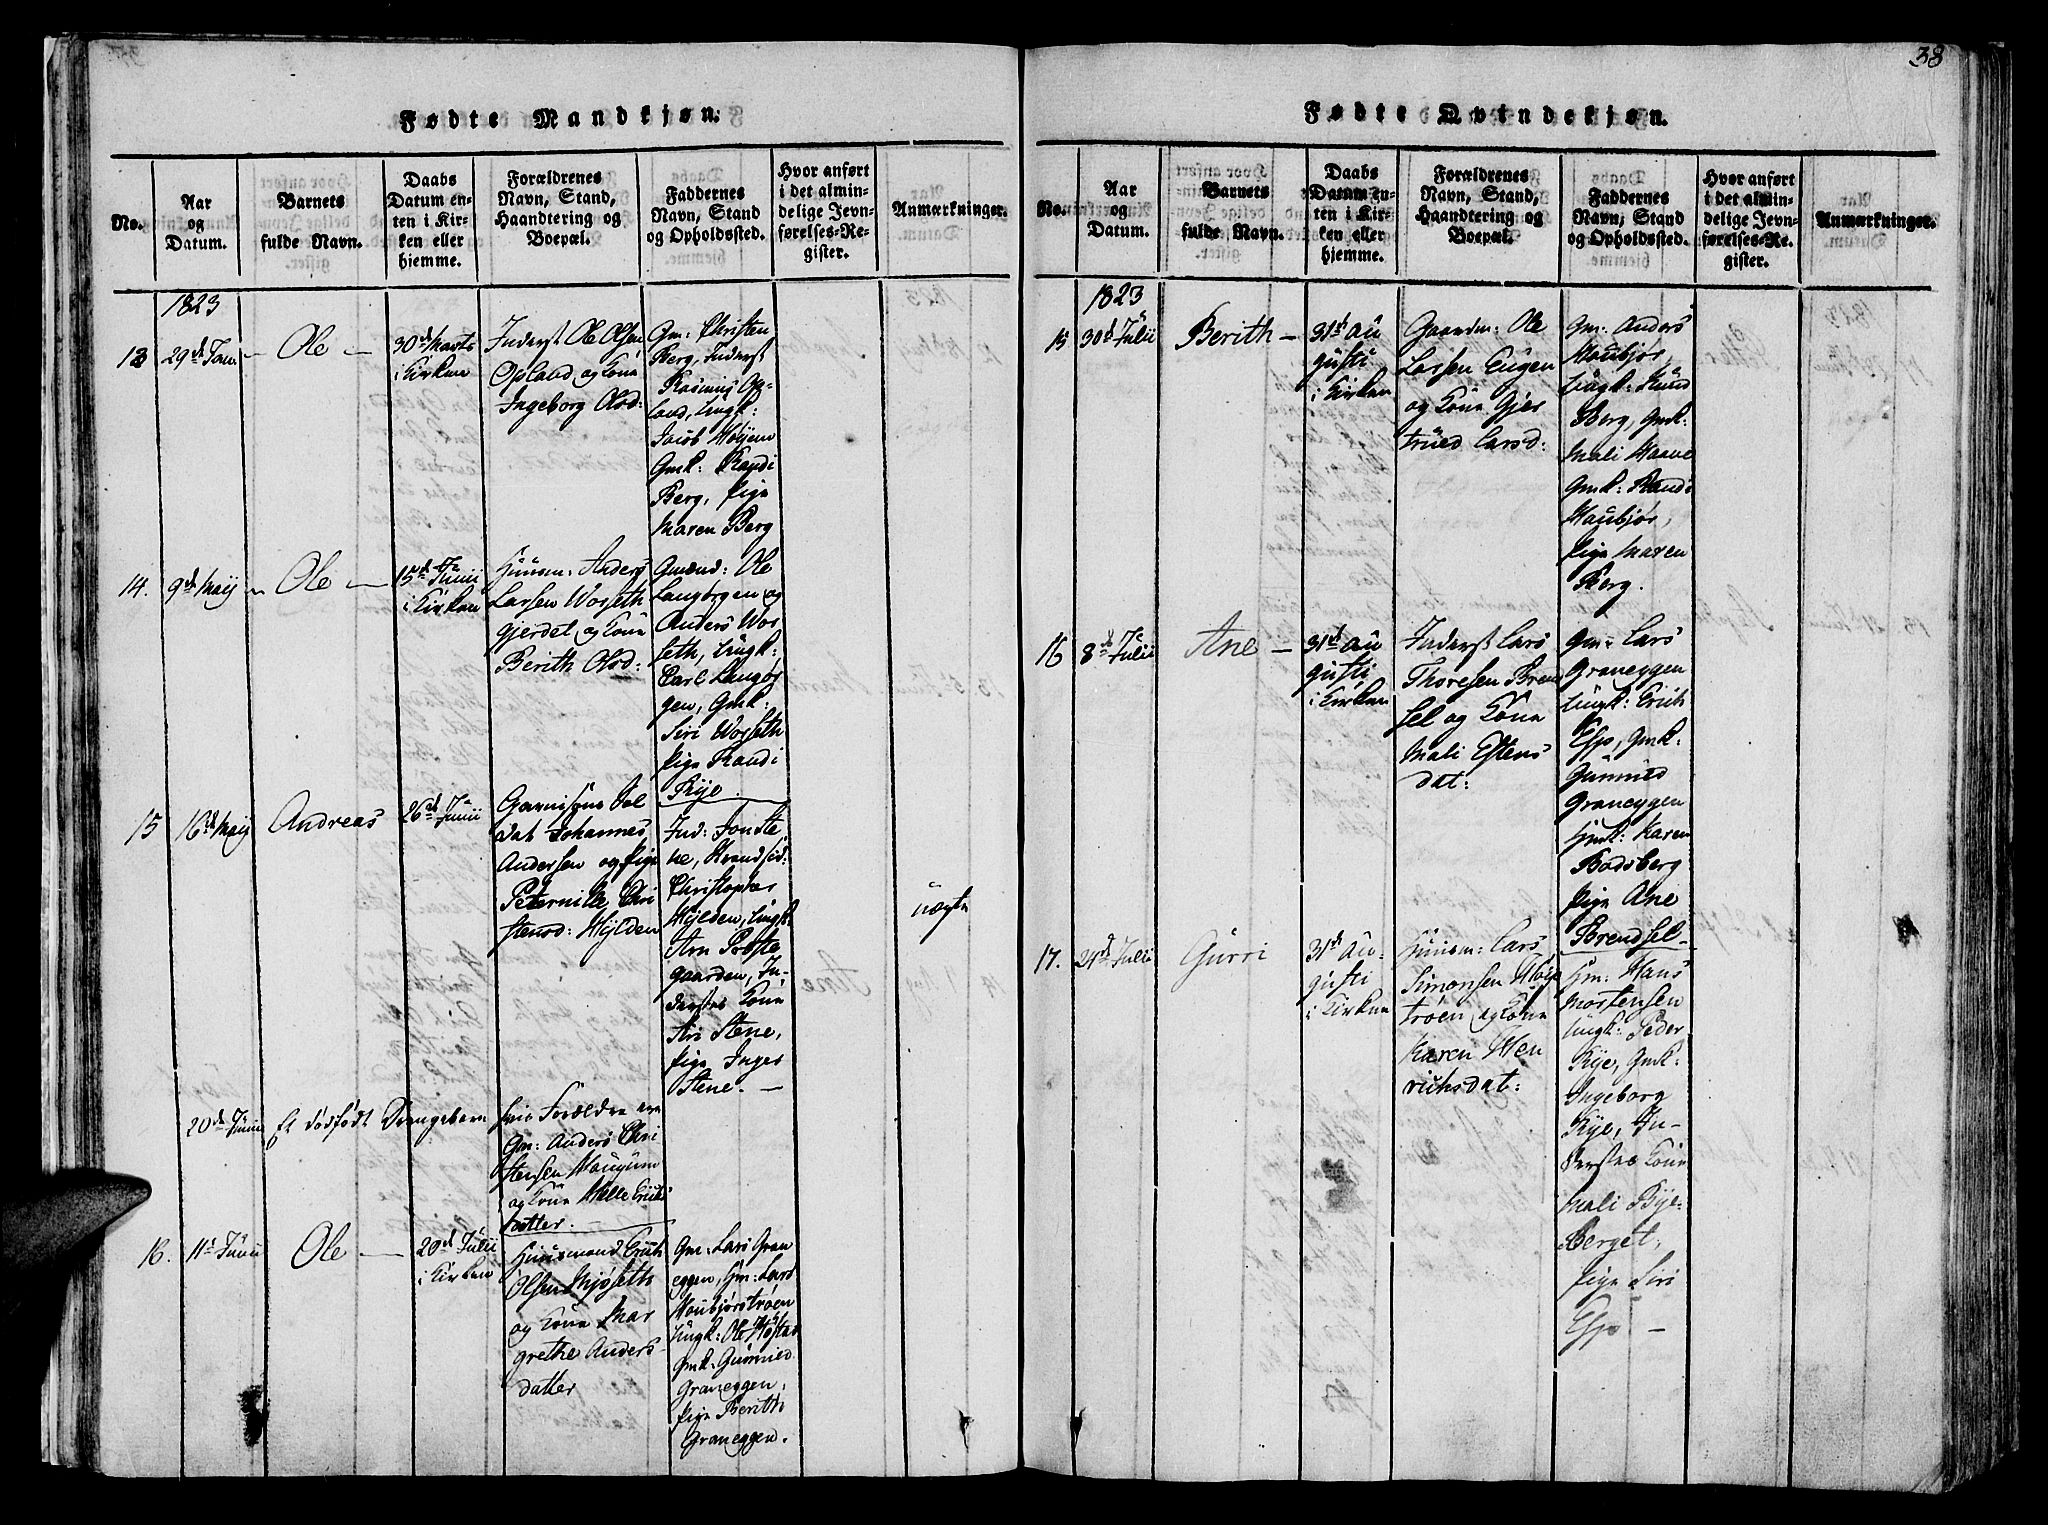 38
Fødte Mandkjøn.
No.
Aar
og
Datum.
Barnets
fulde Navn.
Daabs
Datum en-
ten i Kir-
ken eller
hjemme.
Forældrenes
Navn, Stand,
Haandtering og
Boepæl.
Faddernes
Navn, Stand
og Opholdssted.
Hvor anført
i det almin-
delige Jevn-
førelses-Re-
gister.
Anmærkninger.
1823
13
29d Jan:
Ole
30d Marts
i Kirken
Inderst Ole Olsen
Opland og Kone
Ingeborg Olsd:
Gm: Christen
Berg, Inderst
Rasmus Op-
land, Ungk:
Jacob
Gmk: Randi
Berg, Pige
Maren Berg
14.
9d Maij
Ole
15d Junii
i Kirken
Huusm: Anders
Larsen Worseth
gjerdet og Kone
Berith Olsd:
Gmænd: Ole
Langørgen og
Anders Wor
seth, Ungk:
Carl Langør
gen, Gmk:
Siri Worseth
Pige Randi
Rye.
15
16d Maij
Andreas
26d Junii
Garnisons Sol
dat Johannes
Andersen og Pige
Peternille Chri
stensd: Hylden
Ind: Jon Ste
ne,
Christopher
Hylden, Ungk:
Arn Præste
gaarden, In-
derstes Kone
Ari Stene,
Pige Inger
Stene. —
uægte
20d Junii
Et dødfødt Drengebarn
hvis Forældre ere
Gm: Anders Chri
stensen Haugum
og Kone Helle Erichs
datter.
16.
11d Junii
Ole
20d Julii
i Kirken
Huusmand Erich
Olsen Mjøseth
og Kone Mar
grethe Anders-
datter
Gm: Lars Gran
eggen, Hm: Lars
Haubjørstrøen
Ungk: Ole Høstad
Gmk: Gunnild
Graneggen,
Pige Berith
Graneggen.
Fødte Qvindekjøn.
No.
Aar
og
Datum.
Barnets
fulde Navn.
Daabs
Datum en-
ten i Kir-
ken eller
hjemme.
Forældrenes
Navn, Stand,
Haandtering og
Boepæl.
Faddernes
Navn, Stand
og Opholdssted.
Hvor anført
i det almin-
delige Jevn-
førelses-Re-
gister.
Anmærkninger.
1823
15
30d Julii
Berith —
31d Au
gusti
i Kirken
Gaardm: Ole
Larsen Eugen
og Kone Gjer
trued Larsd:
Gm: Anders
Haubjør,
Ungk: Knud
Berg, Gmk:
Mali Haave
Gmk: Randi
Haubjør,
Pige Maren
Berg.
16
8d Julii
Ane —
31d Au
gusti
i Kirken
Inderst Lars
Thoresen Bren
sel og Kone
Mali Estens
dat:
Gm: Lars
Graneggen
Ungk: Erich
Esp, Gmk:
Gunnild
Graneggen
Hmk: Karen
Bodsberg
Pige Ane
Brendsel —
17.
24d Julii
Gurri
31d Au-
gusti
i Kirken
Huusm: Lars
Simonsen
trøen og Kone
Karen Hen
richsdat:
Hm: Hans
Mortensen
Ungk: Peder
Rye, Gmk:
Ingeborg
Rye, In-
derstes Kone
Mali Bye-
Berget,
Pige Siri
Esp. —